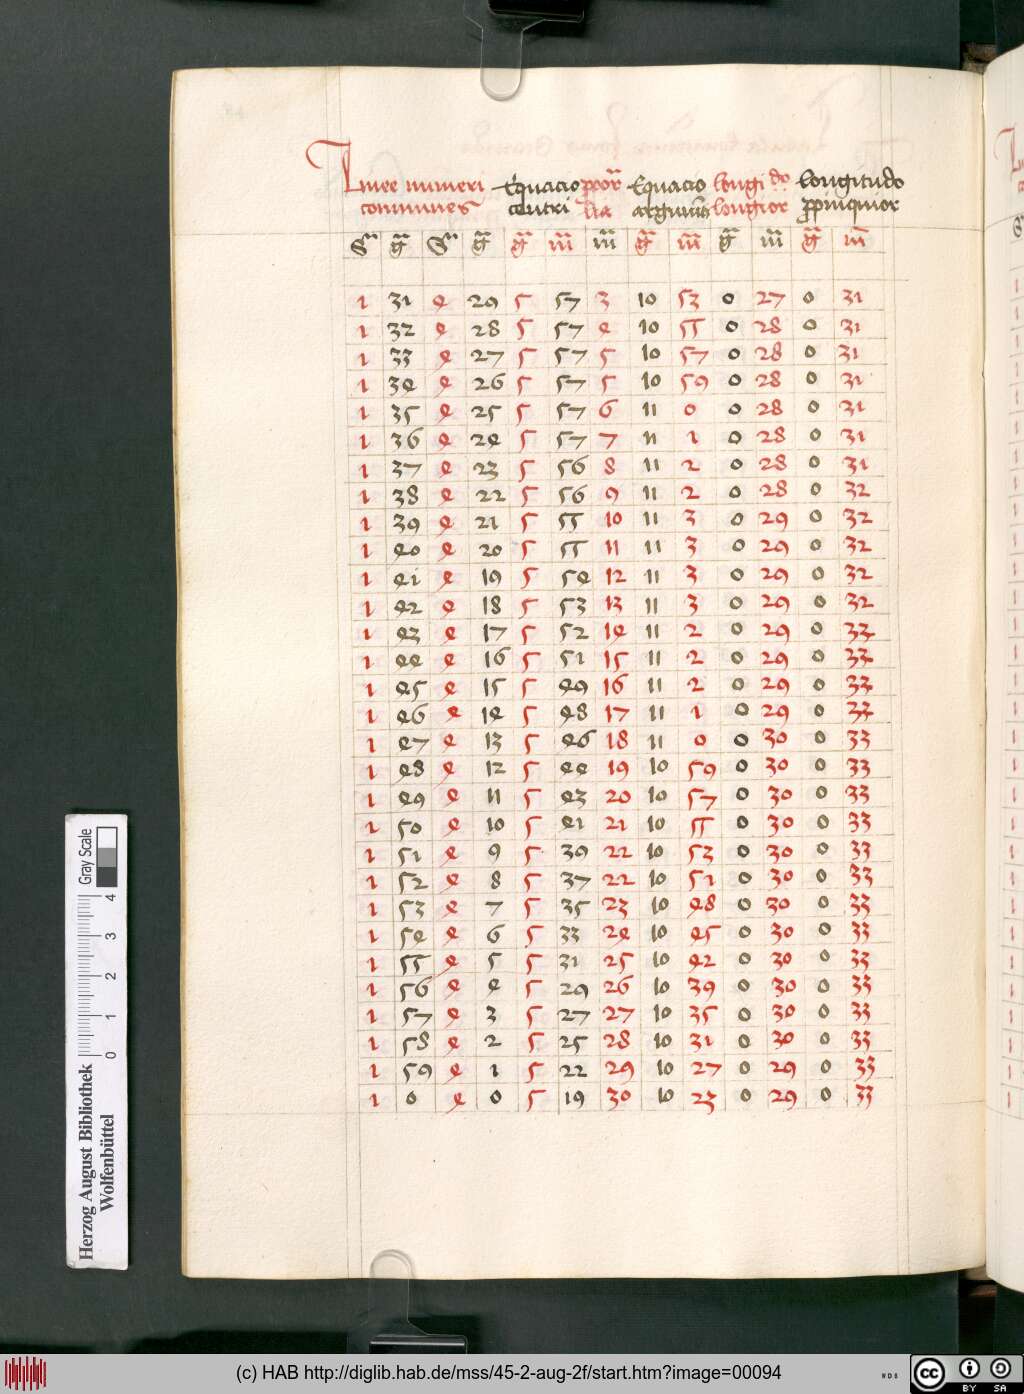 Linee numeri Equacio ꝓpor Equacio longi do longitudo
communes centri lia argumti longior ꝓpinquior
S g S g g m m g m g m g m
1 31 4 29 5 57 3 10 53 0 27 0 31
1 32 4 28 5 57 4 10 55 0 28 0 31
1 33 4 27 5 57 5 10 57 0 28 0 31
1 34 4 26 5 57 5 10 59 0 28 0 31
1 35 4 25 5 57 6 11 0 0 28 0 31
1 36 4 24 5 57 7 11 1 0 28 0 31
1 37 4 23 5 56 8 11 2 0 28 0 31
1 38 4 22 5 56 9 11 2 0 28 0 32
1 39 4 21 5 55 10 11 3 0 29 0 32
1 40 4 20 5 55 11 11 3 0 29 0 32
1 41 4 19 5 54 12 11 3 0 29 0 32
1 42 4 18 5 53 13 11 3 0 29 0 32
1 43 4 17 5 52 14 11 2 0 29 0 33
1 44 4 16 5 51 15 11 2 0 29 0 33
1 45 4 15 5 49 16 11 2 0 29 0 33
1 46 4 14 5 48 17 11 1 0 29 0 33
1 47 4 13 5 46 18 11 0 0 30 0 33
1 48 4 12 5 44 19 10 59 0 30 0 33
1 49 4 11 5 43 20 10 57 0 30 0 33
1 50 4 10 5 41 21 10 55 0 30 0 33
1 51 4 9 5 39 22 10 53 0 30 0 33
1 52 4 8 5 37 22 10 51 0 30 0 33
1 53 4 7 5 35 23 10 48 0 30 0 33
1 54 4 6 5 33 24 10 45 0 30 0 33
1 55 4 5 5 31 25 10 42 0 30 0 33
1 56 4 4 5 29 26 10 39 0 30 0 33
1 57 4 3 5 27 27 10 35 0 30 0 33
1 58 4 2 5 25 28 10 31 0 30 0 33
1 59 4 1 5 22 29 10 27 0 29 0 33
1 0 4 0 5 19 30 10 23 0 29 0 33
Gray Scale
0 1 2 3 4
Herzog August Bibliothek
Wolfenbüttel
(c) HAB http://diglib.hab.de/mss/45-2-aug-2f/start.htm?image=00094
WDB
cc BY SA